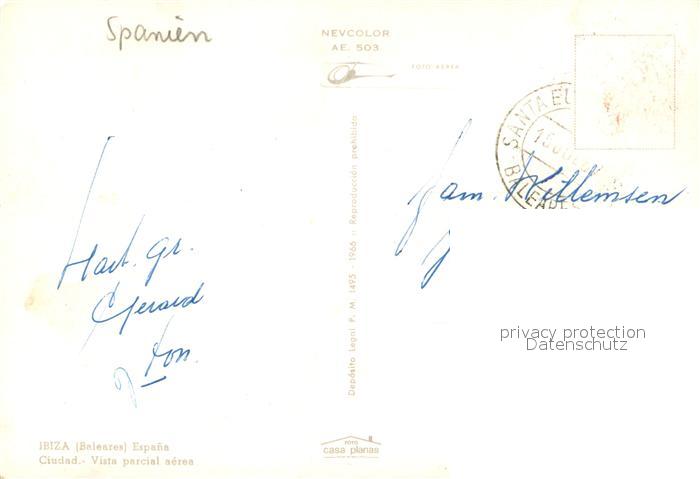 Spanien
NEVCOLOR
AE. 503
FOTO AEREA
SANTA EU
BALEARES
Fam. Willemsen
Hart. Gr.
Gerard
Ton.
Depósito Legal P. M. 1495 - 1966 :: Reproducción prohibida
privacy protection
Datenschutz
IBIZA (Baleares) España
Ciudad.- Vista parcial aérea
FOTO
casa planas